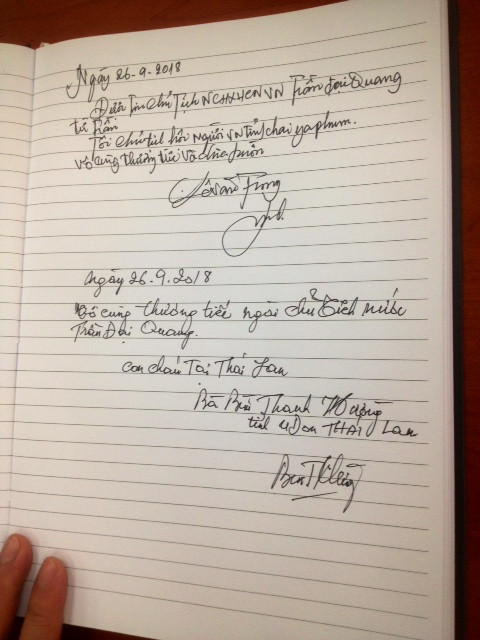 Ngày 26-9-2018
Được tin Chủ Tịch NCHXHCNVN Trần Đại Quang
từ Trần
Tôi Chủ tịch hội Người VN tỉnh chaiyaphum.
Vô cùng thương tiếc và chia buồn
ngày 26.9.2018
Vô cùng thương tiếc ngài chủ tịch nước
Trần Đại Quang.
con cháu Tại Thái Lan
Bà Bùi Thanh
tỉnh uDon THAI Lan